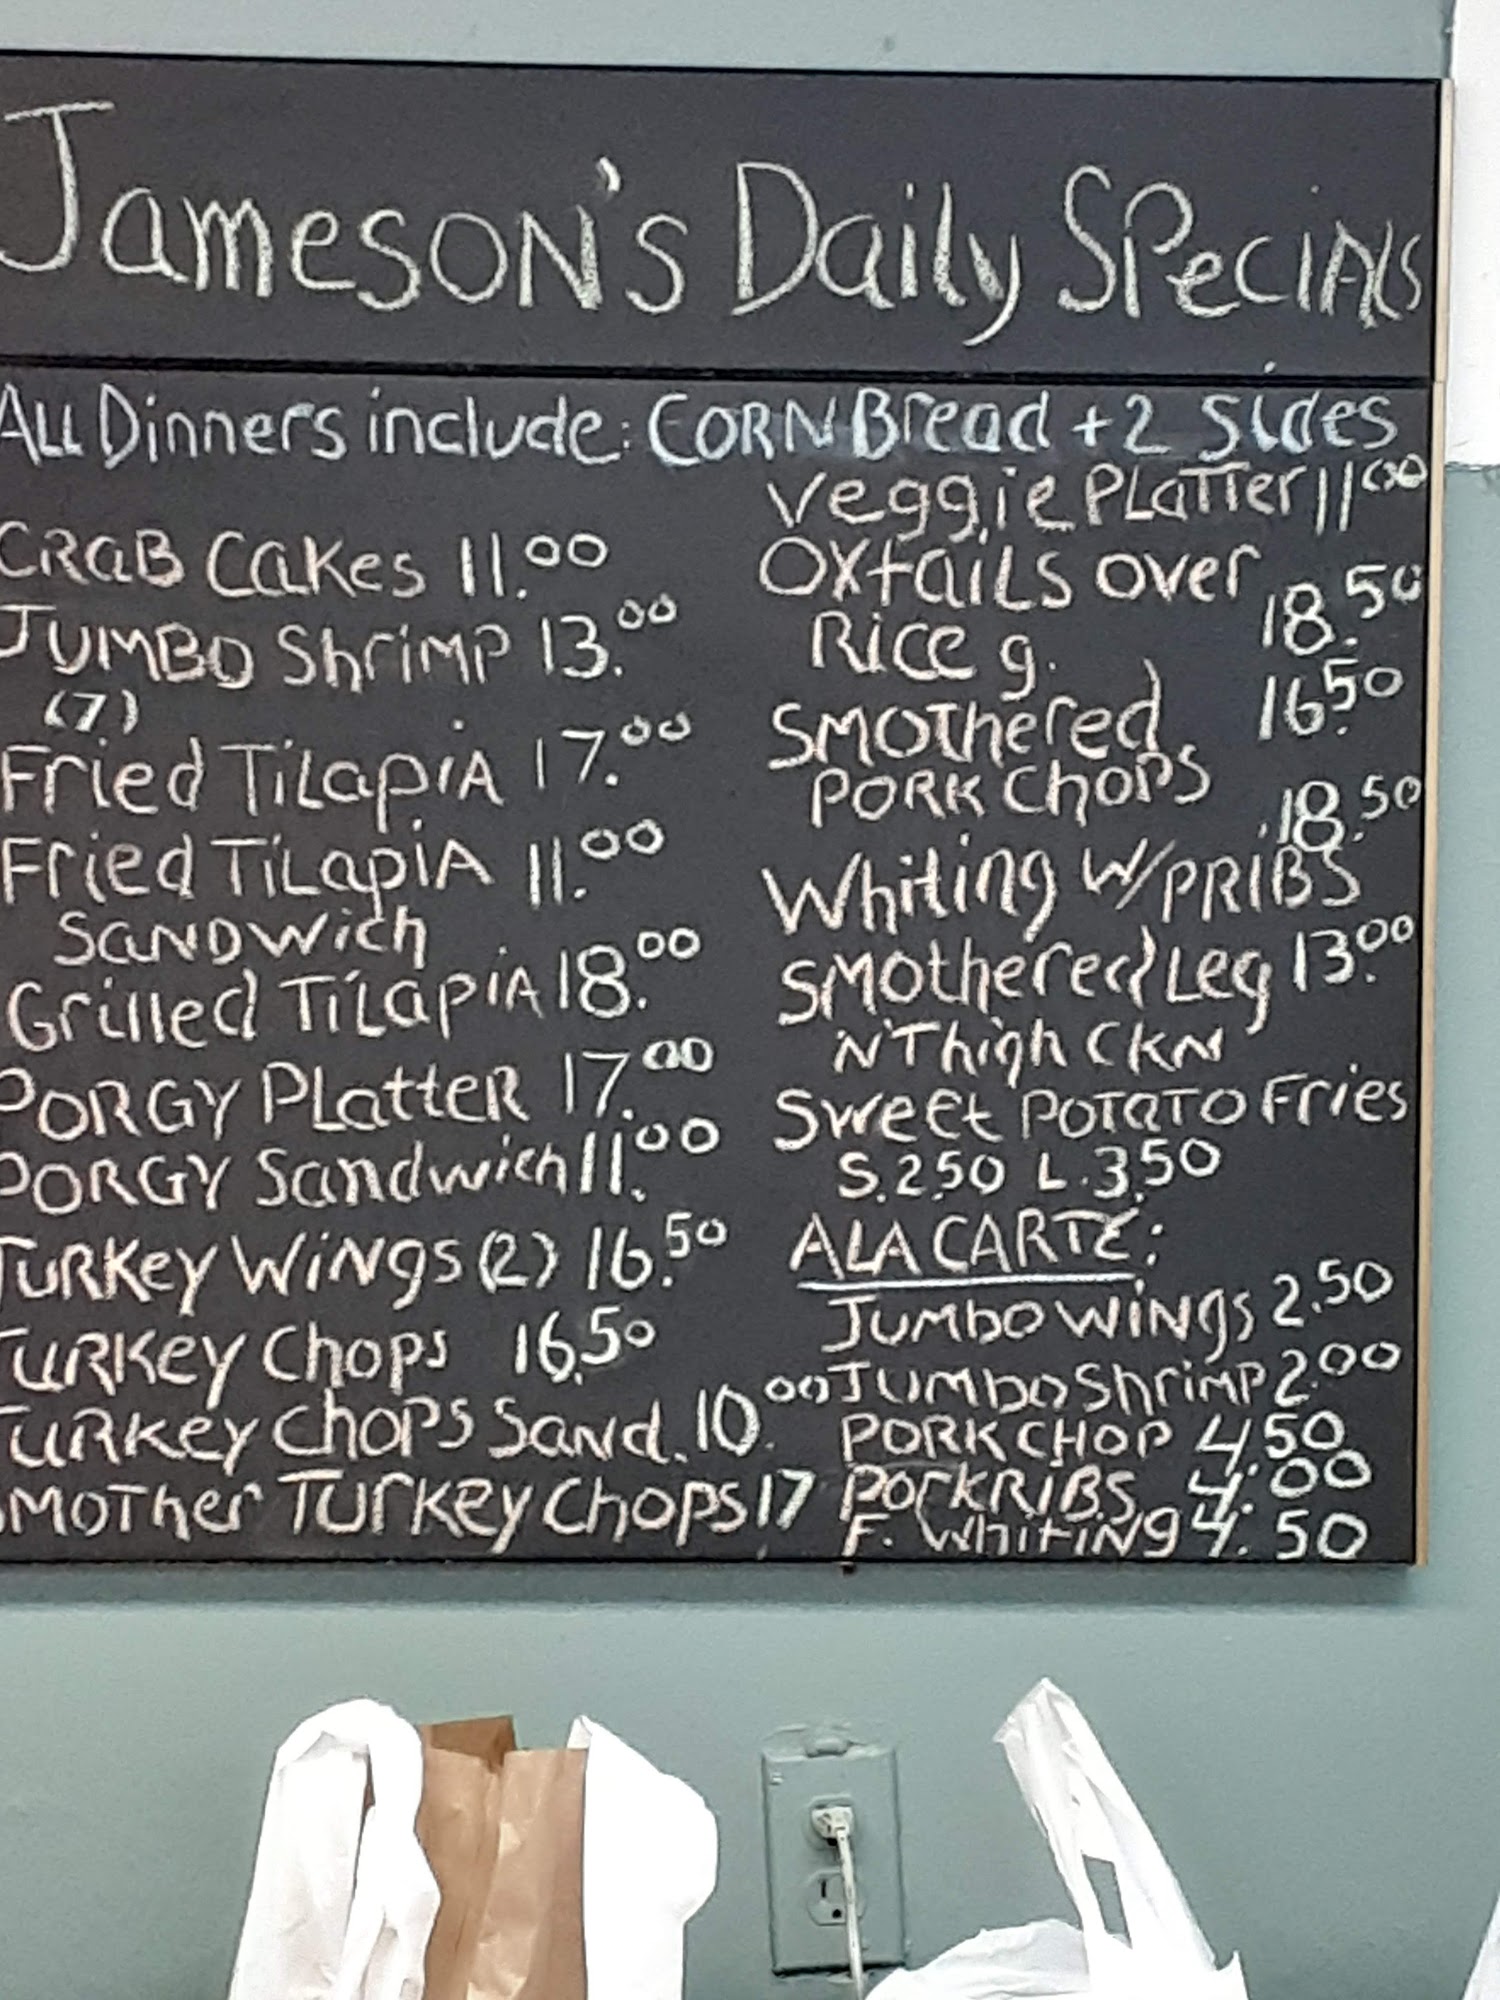 Jameson's Daily Specials
All Dinners include: Corn Bread + 2 Sides
Crab Cakes 11.00
Jumbo Shrimp 13.00
(7)
Fried Tilapia 17.00
Fried Tilapia 11.00
Sandwich
Grilled Tilapia 18.00
Porgy Platter 17.00
Porgy Sandwich 11.00
Turkey Wings (2) 16.50
Turkey Chops 16.50
Turkey Chops Sand. 10.00
Smother Turkey Chops 17
Veggie Platter 11.00
Oxtails over
Rice g. 18.50
Smothered 16.50
Pork Chops
18.50
Whiting W/PRIBS
Smothered Leg 13.00
N Thigh Ckn
Sweet Potato Fries
S. 2.50 L. 3.50
ALA CARTE:
Jumbo Wings 2.50
Jumbo Shrimp 2.00
PORK CHOP 4.50
Pork Ribs 4.00
F. Whiting 4.50